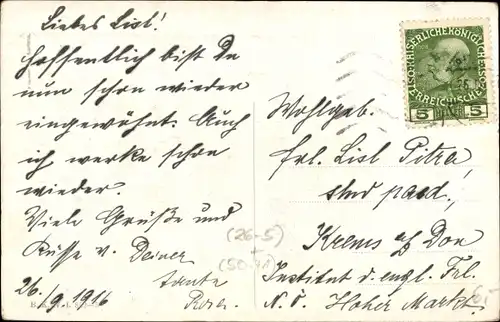 Liebes Lisl!
Hoffentlich bist Du
nun schon wieder
eingewöhnt. Auch
ich werke schon
wieder.
Viele Grüße und
Küsse v. Deiner
Tante
Rosa.
26./9. 1916
K.K. OESTERREICHISCHE
5 5
Wohlgeb.
Frl. Lisl Pitra,
stud paed,
Krems a/D Don
Institut d. engl. Frl.
N.Ö. Hoher Markt.
(26-5)
+